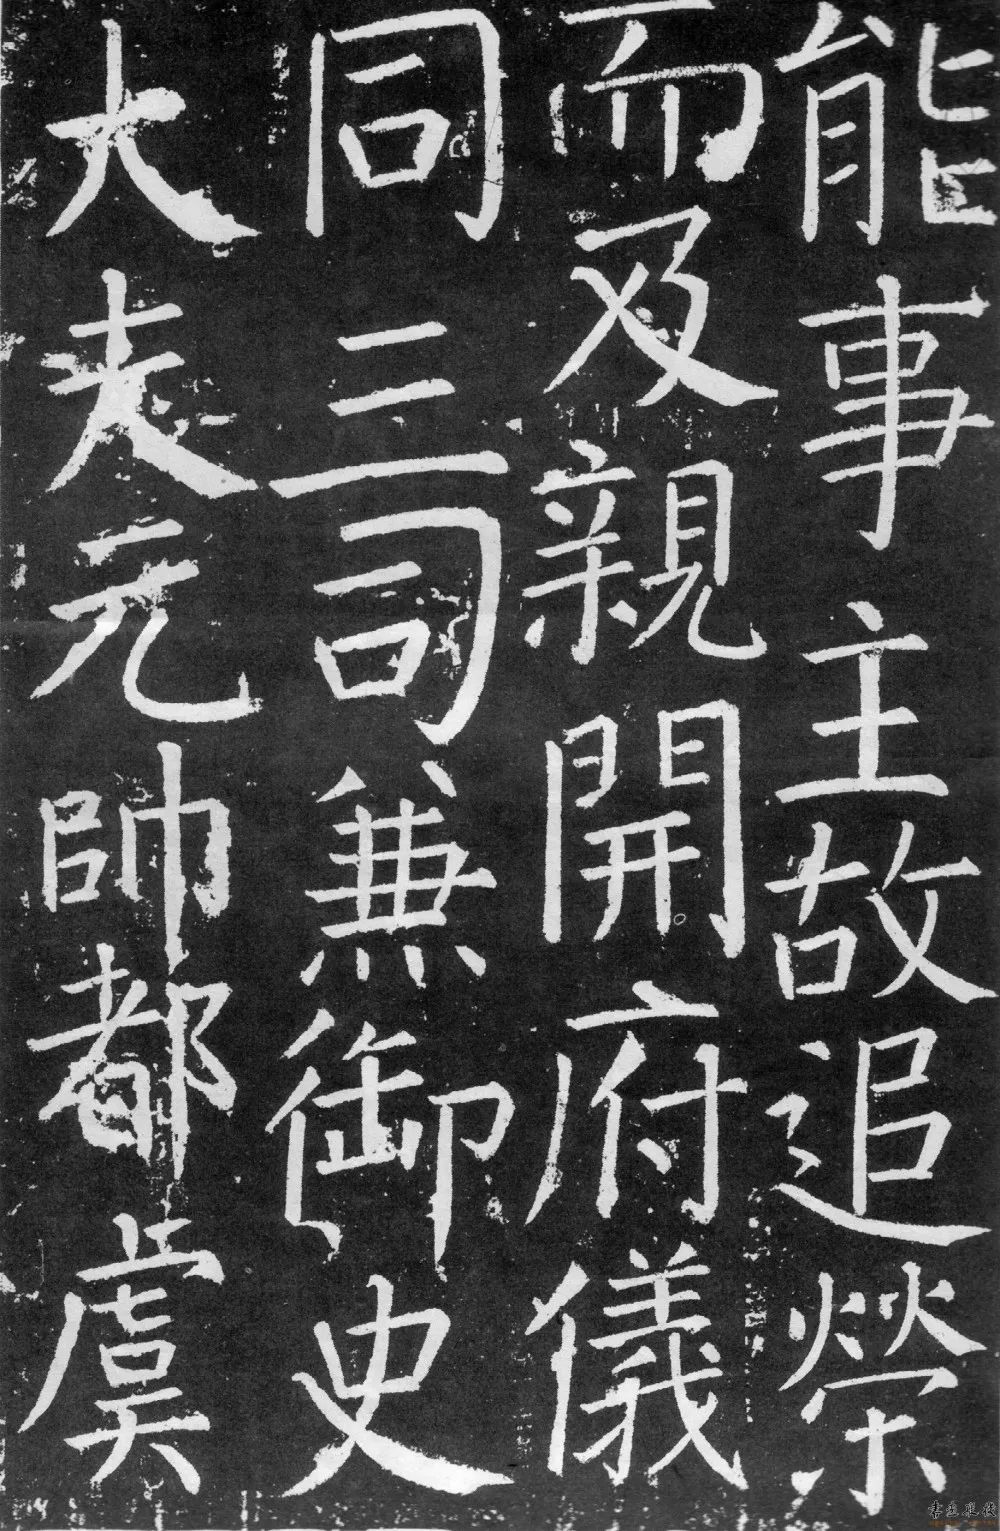 能事主故追榮
而及親開府儀
同三司兼御史
大夫元帥都虞